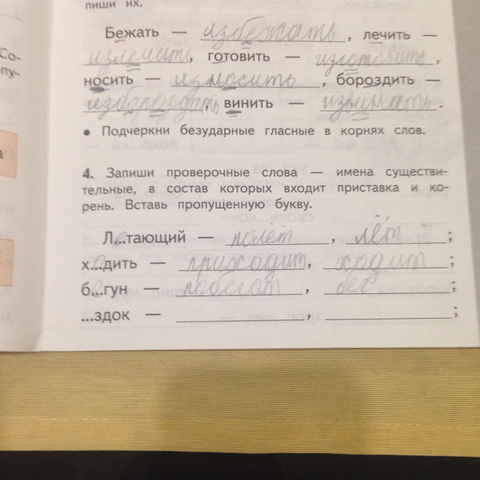 пиши их.
Бежать — избежать, лечить —
излечить, готовить — изготовить,
носить — износить, бороздить —
избороздить, винить —
• Подчеркни безударные гласные в корнях слов.
4. Запиши проверочные слова — имена существи-
тельные, в состав которых входит приставка и ко-
рень. Вставь пропущенную букву.
Л...тающий — полёт, лёт;
х...дить — приходит, ходит;
б...гун — побегат, бег;
...здок — , ;